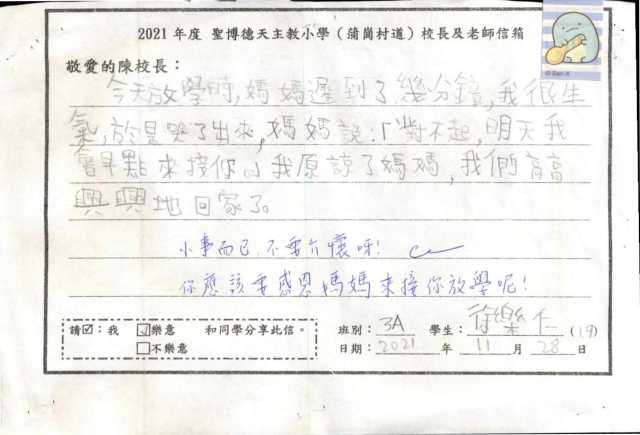 2021 年度 聖博德天主教小學（蒲崗村道）校長及老師信箱
© San-X
敬愛的陳校長：
今天放學時，媽媽遲到了幾分鐘，我很生
氣，於是哭了出來，媽媽說：「對不起，明天我
會早點來接你。」我原諒了媽媽，我們高高
興興地回家了。
小事而已，不要介懷呀！
你應該要感恩媽媽來接你放學呢！
請☑：我 ☑樂意 和同學分享此信。
□不樂意
班別：3A 學生：徐樂仁 (19)
日期：2021 年 11 月 28 日